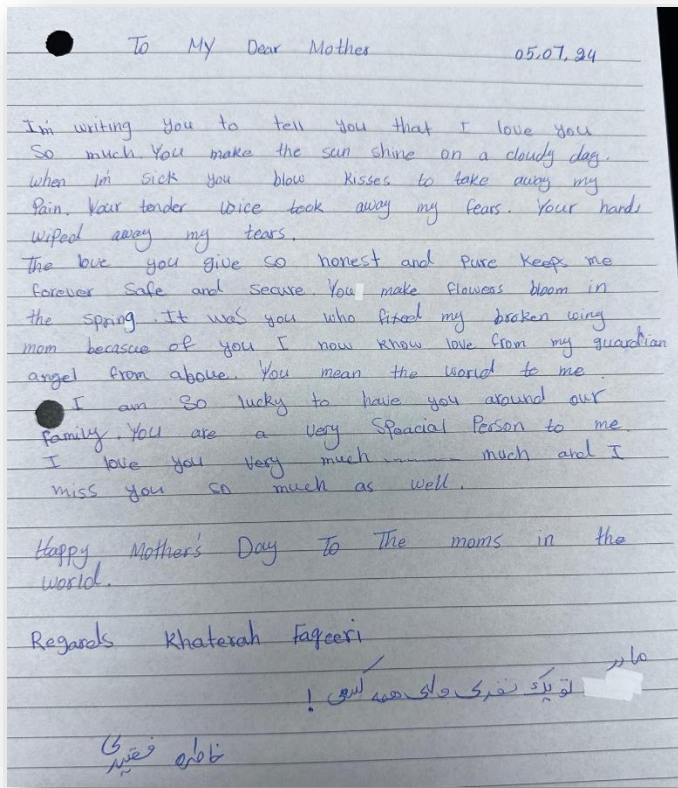 To My Dear Mother 05.07.24
I'm writing you to tell you that I love you
So much. You make the sun shine on a cloudy day.
when I'm sick you blow kisses to take away my
Pain. Your tender voice took away my fears. Your hands
wiped away my tears.
The love you give so honest and pure keeps me
forever safe and secure. You make flowers bloom in
the spring. It was you who fixed my broken wing
mom becasue of you I now know love from my guardian
angel from above. You mean the world to me.
I am so lucky to have you around our
family. You are a very Speacial Person to me.
I love you very much ........... much and I
miss you so much as well.
Happy Mother's Day To The moms in the
world.
Regards Khaterah Faqeeri
مادر
تو یک نفری ولی همه کسی !
خاطره فقیری